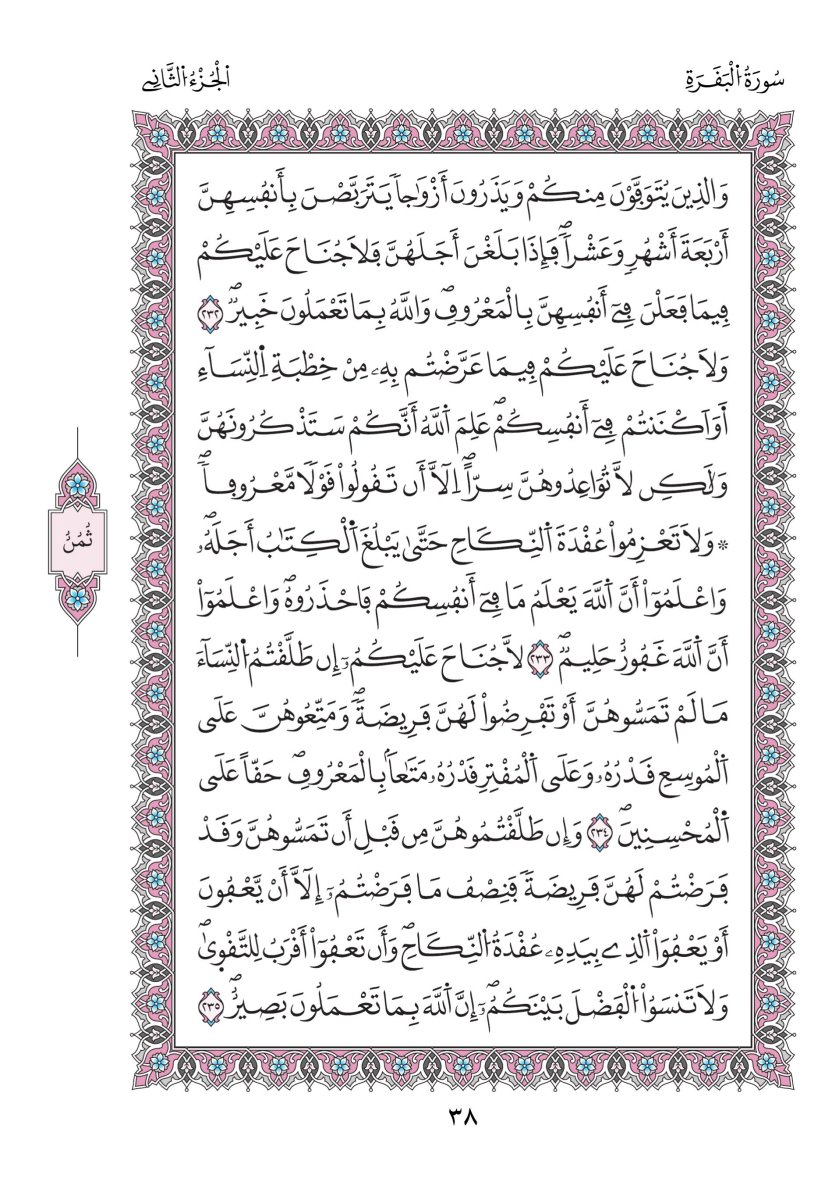 سُورَةُ اُ۬لْبَقَرَةِ
اُ۬لْجُزْءُ اُ۬لثَّانِے
وَالذِينَ يُتَوَفَّوْنَ مِنكُمْ وَيَذَرُونَ أَزْوَٰجاٗ يَتَرَبَّصْنَ بِأَنفُسِهِنَّ
أَرْبَعَةَ أَشْهُرٖ وَعَشْراٗۖ فَإِذَا بَلَغْنَ أَجَلَهُنَّ فَلَا جُنَاحَ عَلَيْكُمْ
فِيمَا فَعَلْنَ فِےٓ أَنفُسِهِنَّ بِالْمَعْرُوفِۖ وَاللَّهُ بِمَا تَعْمَلُونَ خَبِيرٞۖ ٢٣٢
وَلَا جُنَاحَ عَلَيْكُمْ فِيمَا عَرَّضْتُم بِهِۦ مِنْ خِطْبَةِ اِ۬لنِّسَآءِ
اَ۬وَاَكْنَنتُمْ فِےٓ أَنفُسِكُمْۖ عَلِمَ اَ۬للَّهُ أَنَّكُمْ سَتَذْكُرُونَهُنَّ
وَلَٰكِن لَّا تُوَاعِدُوهُنَّ سِرّاًۖ اِلَّآ أَن تَقُولُواْ قَوْلاٗ مَّعْرُوفاٗۖ
* وَلَا تَعْزِمُواْ عُقْدَةَ اَ۬لنِّكَاحِ حَتَّىٰ يَبْلُغَ اَ۬لْكِتَٰبُ أَجَلَهُۥۖ
وَاعْلَمُوٓاْ أَنَّ اَ۬للَّهَ يَعْلَمُ مَا فِےٓ أَنفُسِكُمْ فَاحْذَرُوهُۖ وَاعْلَمُوٓاْ
أَنَّ اَ۬للَّهَ غَفُورٌ حَلِيمٞۖ ٢٣٣ لَّا جُنَاحَ عَلَيْكُمُۥٓ إِن طَلَّقْتُمُ اُ۬لنِّسَآءَ
مَا لَمْ تَمَسُّوهُنَّ أَوْ تَفْرِضُواْ لَهُنَّ فَرِيضَةٗۖ وَمَتِّعُوهُنَّ عَلَى
اَ۬لْمُوسِعِ قَدْرُهُۥ وَعَلَى اَ۬لْمُقْتِرِ قَدْرُهُۥ مَتَٰعاَۢ بِالْمَعْرُوفِۖ حَقّاً عَلَى
اَ۬لْمُحْسِنِينَۖ ٢٣٤ وَإِن طَلَّقْتُمُوهُنَّ مِن قَبْلِ أَن تَمَسُّوهُنَّ وَقَدْ
فَرَضْتُمْ لَهُنَّ فَرِيضَةٗ فَنِصْفُ مَا فَرَضْتُمُۥٓ إِلَّآ أَنْ يَّعْفُونَ
أَوْ يَعْفُوَاْ اَ۬لذِے بِيَدِهِۦ عُقْدَةُ اُ۬لنِّكَاحِۖ وَأَن تَعْفُوٓاْ أَقْرَبُ لِلتَّقْوَىٰۖ
وَلَا تَنسَوُاْ اُ۬لْفَضْلَ بَيْنَكُمُۥٓۖ إِنَّ اَ۬للَّهَ بِمَا تَعْمَلُونَ بَصِيرٌۖ ٢٣٥
ثُمُنُ
٣٨